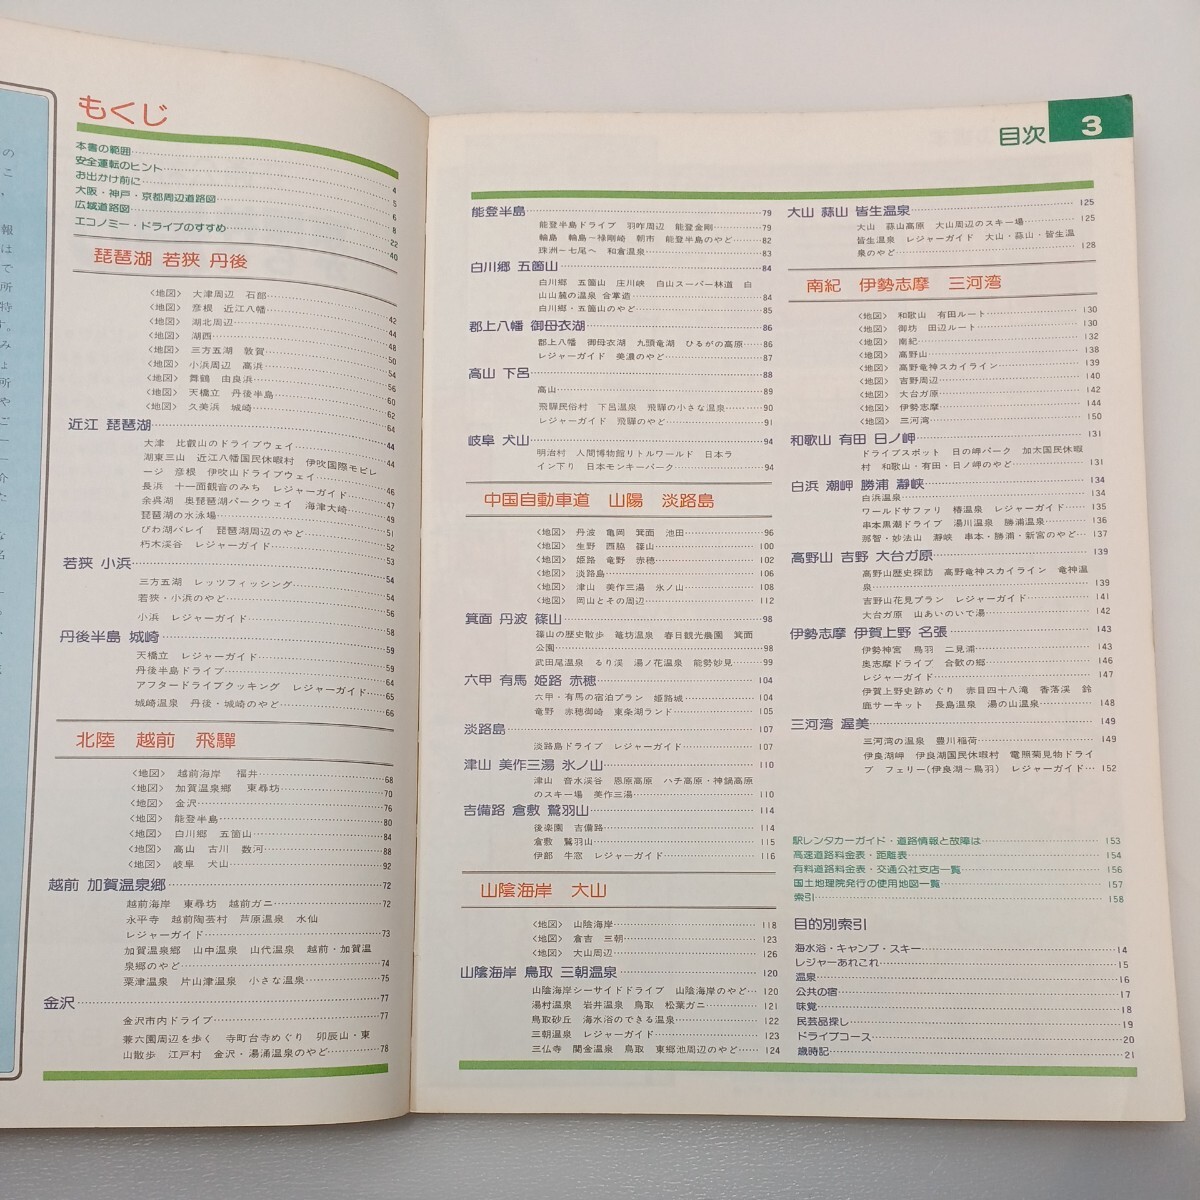 もくじ
本書の範囲 4
安全運転のヒント 5
お出かけ前に 6
大阪・神戸・京都周辺道路図 8
広域道路図 22
エコノミー・ドライブのすすめ 40
琵琶湖 若狭 丹後
〈地図〉 大津周辺 石部 42
〈地図〉 彦根 近江八幡 44
〈地図〉 湖北周辺 48
〈地図〉 湖西 50
〈地図〉 三方五湖 敦賀 54
〈地図〉 小浜周辺 高浜 56
〈地図〉 舞鶴 由良浜 60
〈地図〉 天橋立 丹後半島 62
〈地図〉 久美浜 城崎 64
近江 琵琶湖 44
大津 比叡山のドライブウェイ 44
湖東三山 近江八幡国民休暇村 伊吹国際モビレ
ージ 彦根 伊吹山ドライブウェイ 46
長浜 十一面観音のみち レジャーガイド 47
余呉湖 奥琵琶湖パークウェイ 海津大崎 49
琵琶湖の水泳場 51
びわ湖バレイ 琵琶湖周辺のやど 52
朽木渓谷 レジャーガイド 53
若狭 小浜 54
三方五湖 レッツフィッシング 54
若狭・小浜のやど 56
小浜 レジャーガイド 58
丹後半島 城崎 59
天橋立 レジャーガイド 59
丹後半島ドライブ 64
アフタードライブクッキング レジャーガイド 65
城崎温泉 丹後・城崎のやど 66
北陸 越前 飛騨
〈地図〉 越前海岸 福井 68
〈地図〉 加賀温泉郷 東尋坊 70
〈地図〉 金沢 76
〈地図〉 能登半島 80
〈地図〉 白川郷 五箇山 84
〈地図〉 高山 古川 数河 88
〈地図〉 岐阜 犬山 92
越前 加賀温泉郷 72
越前海岸 東尋坊 越前ガニ 72
永平寺 越前陶芸村 芦原温泉 水仙
レジャーガイド 73
加賀温泉郷 山中温泉 山代温泉 越前・加賀温
泉郷のやど 74
粟津温泉 片山津温泉 小さな温泉 75
金沢 77
金沢市内ドライブ 77
兼六園周辺を歩く 寺町台寺めぐり 卯辰山・東
山散歩 江戸村 金沢・湯涌温泉のやど 78
目次 3
能登半島 79
能登半島ドライブ 羽咋周辺 能登金剛 79
輪島 輪島～禄剛崎 朝市 能登半島のやど 82
珠洲～七尾へ 和倉温泉 83
白川郷 五箇山 84
白川郷 五箇山 庄川峡 白山スーパー林道 白
山山麓の温泉 合掌造 84
白川郷・五箇山のやど 85
郡上八幡 御母衣湖 86
郡上八幡 御母衣湖 九頭竜湖 ひるがの高原 86
レジャーガイド 美濃のやど 87
高山 下呂 88
高山 89
飛騨民俗村 下呂温泉 飛騨の小さな温泉 90
レジャーガイド 飛騨のやど 91
岐阜 犬山 94
明治村 人間博物館リトルワールド 日本ラ
イン下り 日本モンキーパーク 94
中国自動車道 山陽 淡路島
〈地図〉 丹波 亀岡 箕面 池田 96
〈地図〉 生野 西脇 篠山 100
〈地図〉 姫路 竜野 赤穂 102
〈地図〉 淡路島 106
〈地図〉 津山 美作三湯 氷ノ山 108
〈地図〉 岡山とその周辺 112
箕面 丹波 篠山 98
篠山の歴史散歩 篭坊温泉 春日観光農園 箕面
公園 98
武田尾温泉 るり渓 湯ノ花温泉 能勢妙見 99
六甲 有馬 姫路 赤穂 104
六甲・有馬の宿泊プラン 姫路城 104
竜野 赤穂御崎 東条湖ランド 105
淡路島 107
淡路島ドライブ レジャーガイド 107
津山 美作三湯 氷ノ山 110
津山 音水渓谷 恩原高原 ハチ高原・神鍋高原
のスキー場 美作三湯 110
吉備路 倉敷 鷲羽山 114
後楽園 吉備路 114
倉敷 鷲羽山 115
伊部 牛窓 レジャーガイド 116
山陰海岸 大山
〈地図〉 山陰海岸 118
〈地図〉 倉吉 三朝 123
〈地図〉 大山周辺 126
山陰海岸 鳥取 三朝温泉 120
山陰海岸シーサイドドライブ 山陰海岸のやど 120
湯村温泉 岩井温泉 鳥取 松葉ガニ 121
鳥取砂丘 海水浴のできる温泉 122
三朝温泉 レジャーガイド 123
三仏寺 関金温泉 鳥取 東郷池周辺のやど 124
大山 蒜山 皆生温泉 125
大山 蒜山高原 大山周辺のスキー場 125
皆生温泉 レジャーガイド 大山・蒜山・皆生温
泉のやど 128
南紀 伊勢志摩 三河湾
〈地図〉 和歌山 有田ルート 130
〈地図〉 御坊 田辺ルート 130
〈地図〉 南紀 132
〈地図〉 高野山 138
〈地図〉 高野竜神スカイライン 139
〈地図〉 吉野周辺 140
〈地図〉 大台ガ原 142
〈地図〉 伊勢志摩 144
〈地図〉 三河湾 150
和歌山 有田 日ノ岬 131
ドライブスポット 日の岬パーク 加太国民休暇
村 和歌山・有田・日ノ岬のやど 131
白浜 潮岬 勝浦 瀞峡 134
白浜温泉 134
ワールドサファリ 椿温泉 レジャーガイド 135
串本黒潮ドライブ 湯川温泉 勝浦温泉 136
那智・妙法山 瀞峡 串本・勝浦・新宮のやど 137
高野山 吉野 大台ガ原 139
高野山歴史探訪 高野竜神スカイライン 竜神温
泉 139
吉野山花見プラン レジャーガイド 141
大台ガ原 山あいのいで湯 142
伊勢志摩 伊賀上野 名張 143
伊勢神宮 鳥羽 二見浦 143
奥志摩ドライブ 合歓の郷 146
レジャーガイド 147
伊賀上野史跡めぐり 赤目四十八滝 香落渓 鈴
鹿サーキット 長島温泉 湯の山温泉 148
三河湾 渥美 149
三河湾の温泉 豊川稲荷 149
伊良湖岬 伊良湖国民休暇村 電照菊見物ドライ
ブ フェリー(伊良湖～鳥羽) レジャーガイド 152
駅レンタカーガイド・道路情報と故障は 153
高速道路料金表・距離表 154
有料道路料金表・交通公社支店一覧 156
国土地理院発行の使用地図一覧 157
索引 158
目的別索引
海水浴・キャンプ・スキー 14
レジャーあれこれ 15
温泉 16
公共の宿 17
味覚 18
民芸品探し 19
ドライブコース 20
歳時記 21